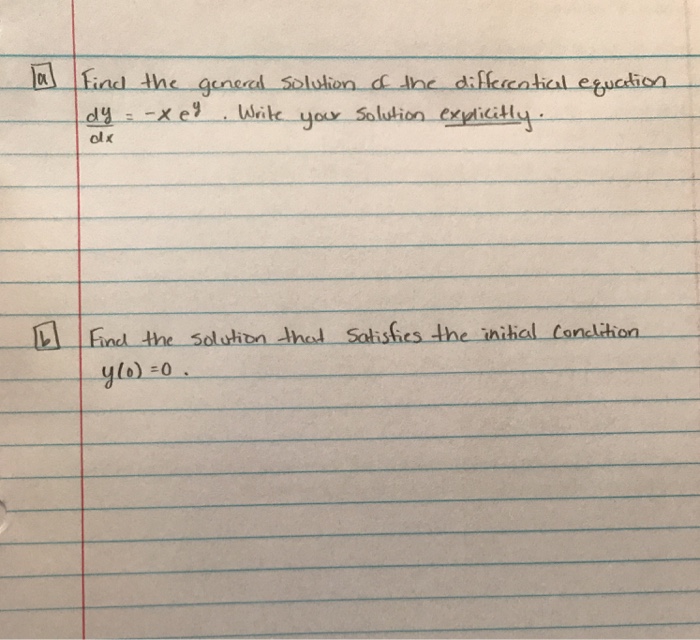 a Find the general solution of the differential equation
dy/dx = -x e^y . Write your solution explicitly.
b Find the solution that satisfies the initial condition
y(0) = 0 .